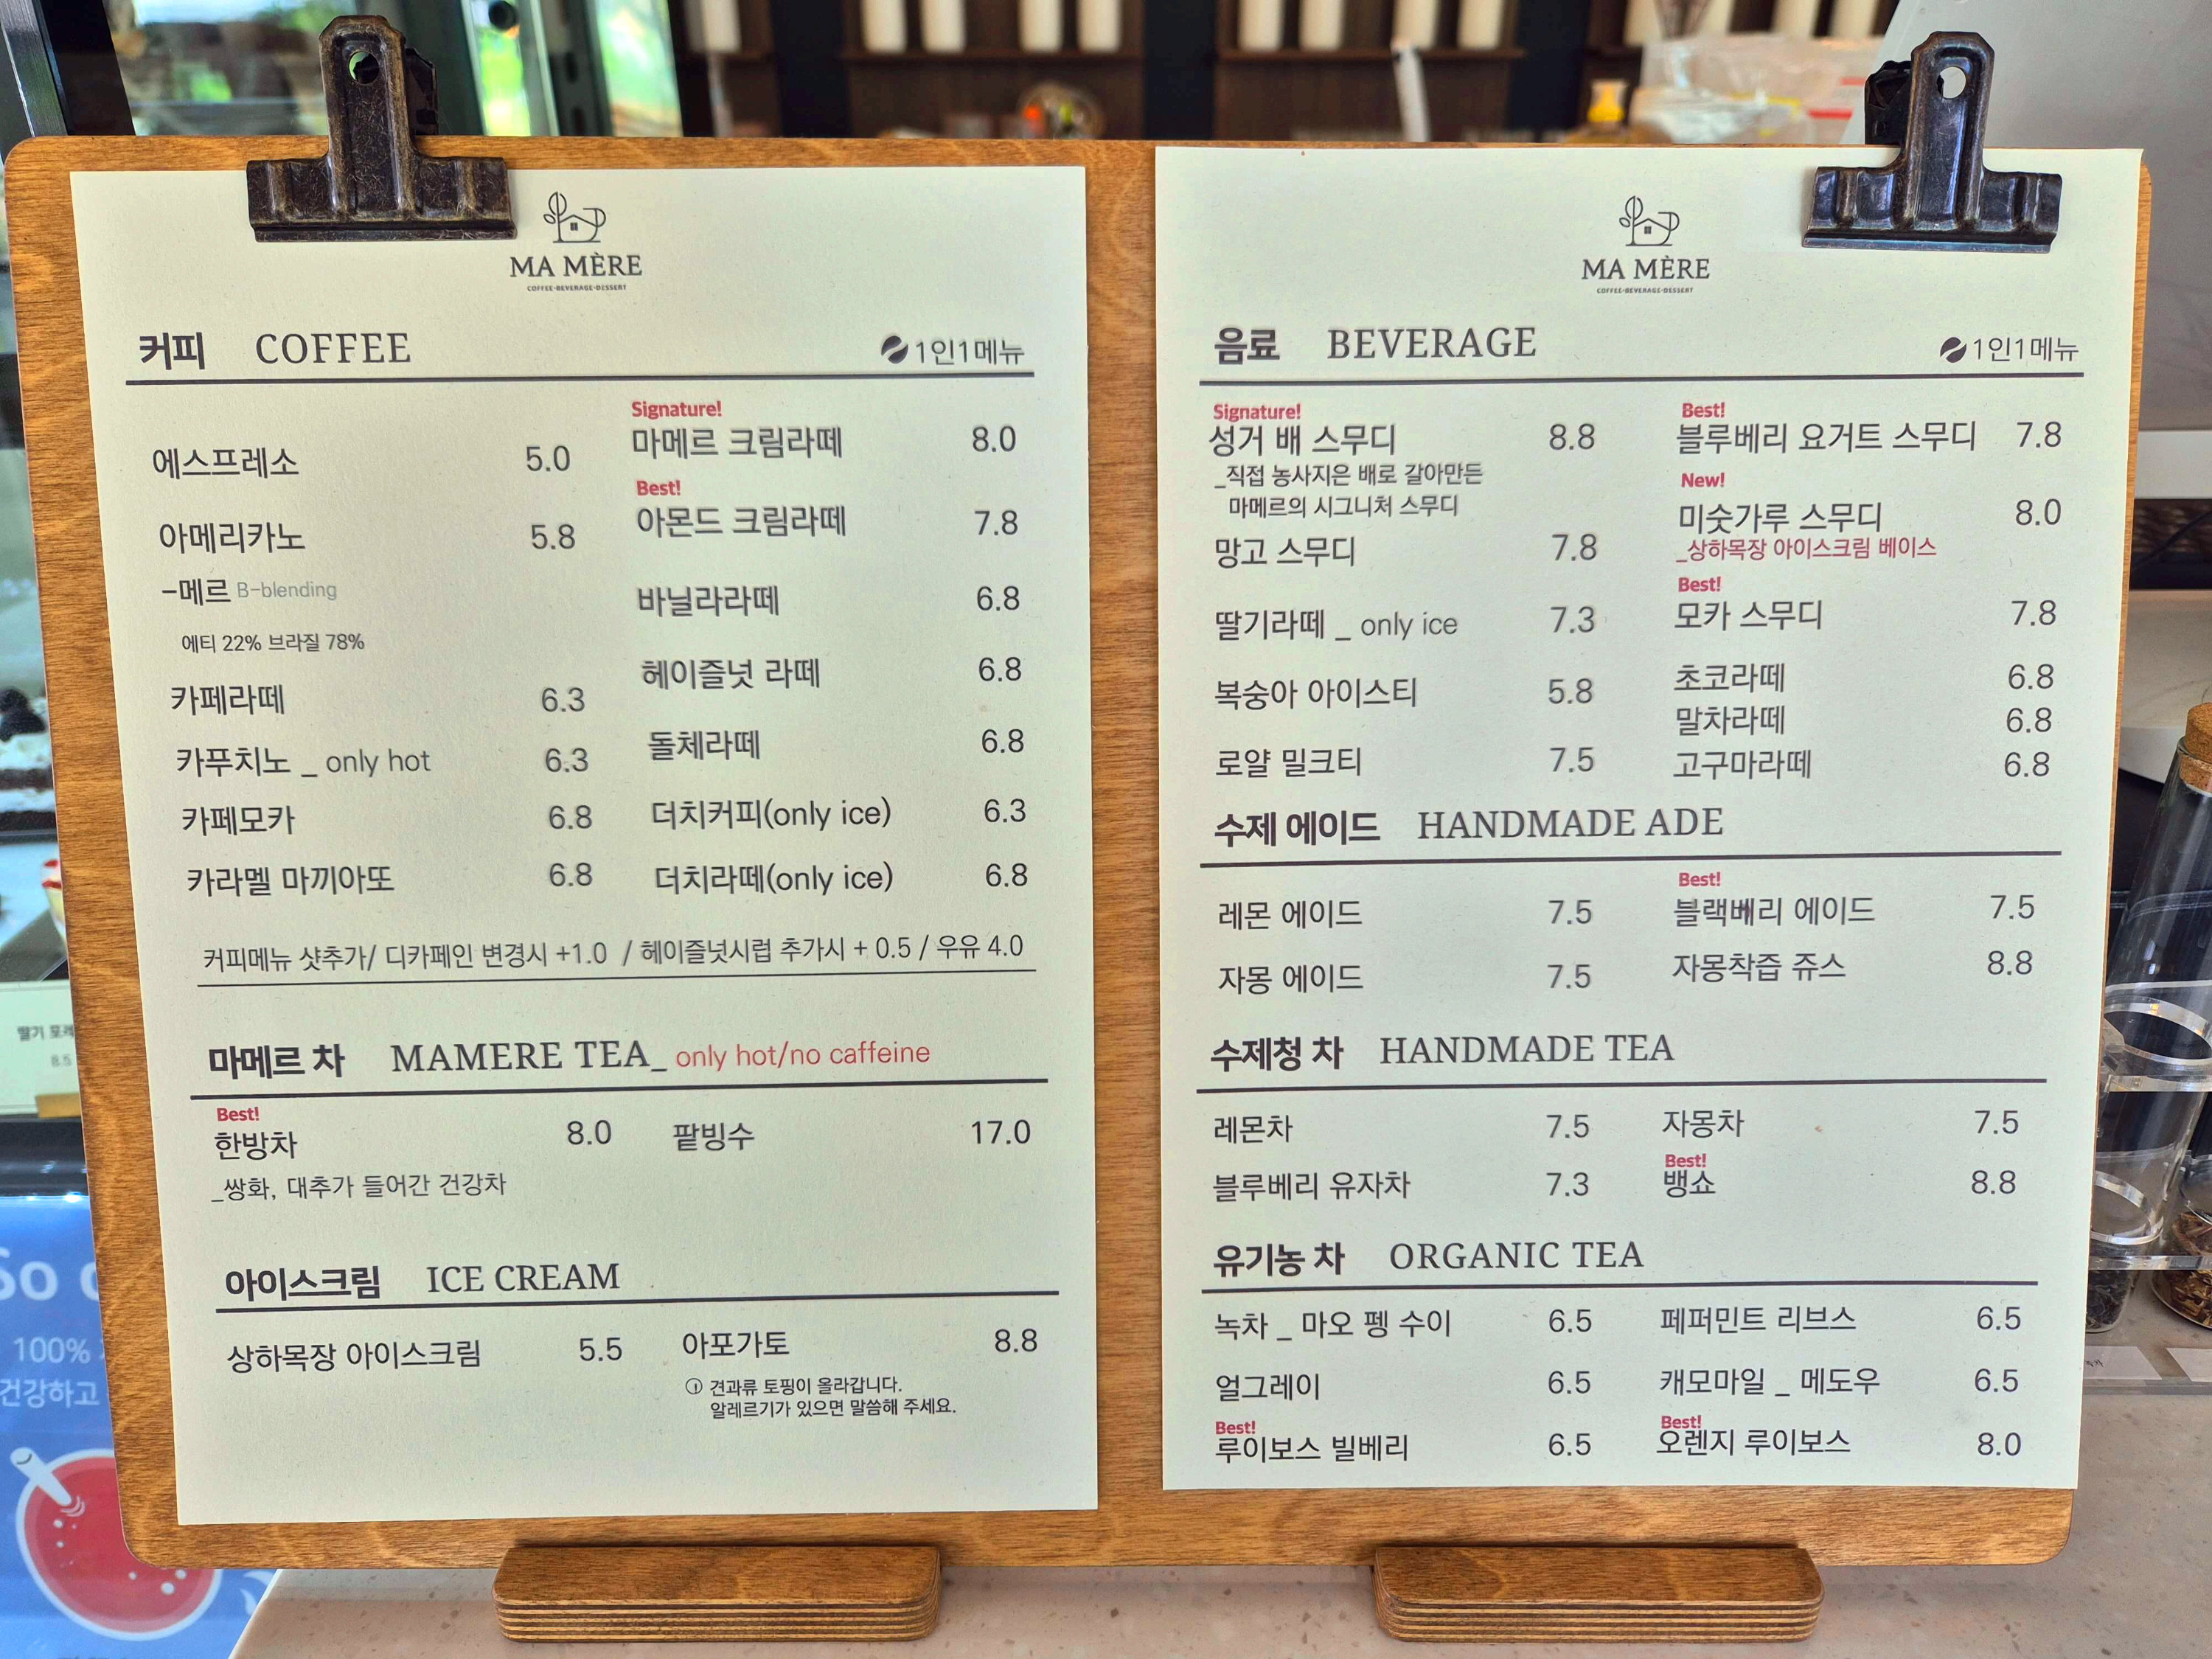 MA MÈRE
COFFEE·BEVERAGE·DESSERT
커피 COFFEE
1인1메뉴
에스프레소 5.0
아메리카노 5.8
-메르 B-blending
에티 22% 브라질 78%
카페라떼 6.3
카푸치노 _ only hot 6.3
카페모카 6.8
카라멜 마끼아또 6.8
Signature!
마메르 크림라떼 8.0
Best!
아몬드 크림라떼 7.8
바닐라라떼 6.8
헤이즐넛 라떼 6.8
돌체라떼 6.8
더치커피(only ice) 6.3
더치라떼(only ice) 6.8
커피메뉴 샷추가/ 디카페인 변경시 +1.0 / 헤이즐넛시럽 추가시 + 0.5 / 우유 4.0
마메르 차 MAMERE TEA_ only hot/no caffeine
Best!
한방차 8.0
_쌍화, 대추가 들어간 건강차
팥빙수 17.0
아이스크림 ICE CREAM
상하목장 아이스크림 5.5
아포가토 8.8
견과류 토핑이 올라갑니다.
알레르기가 있으면 말씀해 주세요.
MA MÈRE
COFFEE·BEVERAGE·DESSERT
음료 BEVERAGE
1인1메뉴
Signature!
성거 배 스무디 8.8
_직접 농사지은 배로 갈아만든
마메르의 시그니처 스무디
망고 스무디 7.8
딸기라떼 _ only ice 7.3
복숭아 아이스티 5.8
로얄 밀크티 7.5
Best!
블루베리 요거트 스무디 7.8
New!
미숫가루 스무디 8.0
_상하목장 아이스크림 베이스
Best!
모카 스무디 7.8
초코라떼 6.8
말차라떼 6.8
고구마라떼 6.8
수제 에이드 HANDMADE ADE
레몬 에이드 7.5
자몽 에이드 7.5
Best!
블랙베리 에이드 7.5
자몽착즙 쥬스 8.8
수제청 차 HANDMADE TEA
레몬차 7.5
블루베리 유자차 7.3
자몽차 7.5
Best!
뱅쇼 8.8
유기농 차 ORGANIC TEA
녹차 _ 마오 펭 수이 6.5
얼그레이 6.5
Best!
루이보스 빌베리 6.5
페퍼민트 리브스 6.5
캐모마일 _ 메도우 6.5
Best!
오렌지 루이보스 8.0
딸기
8.5
So
100%
건강하고